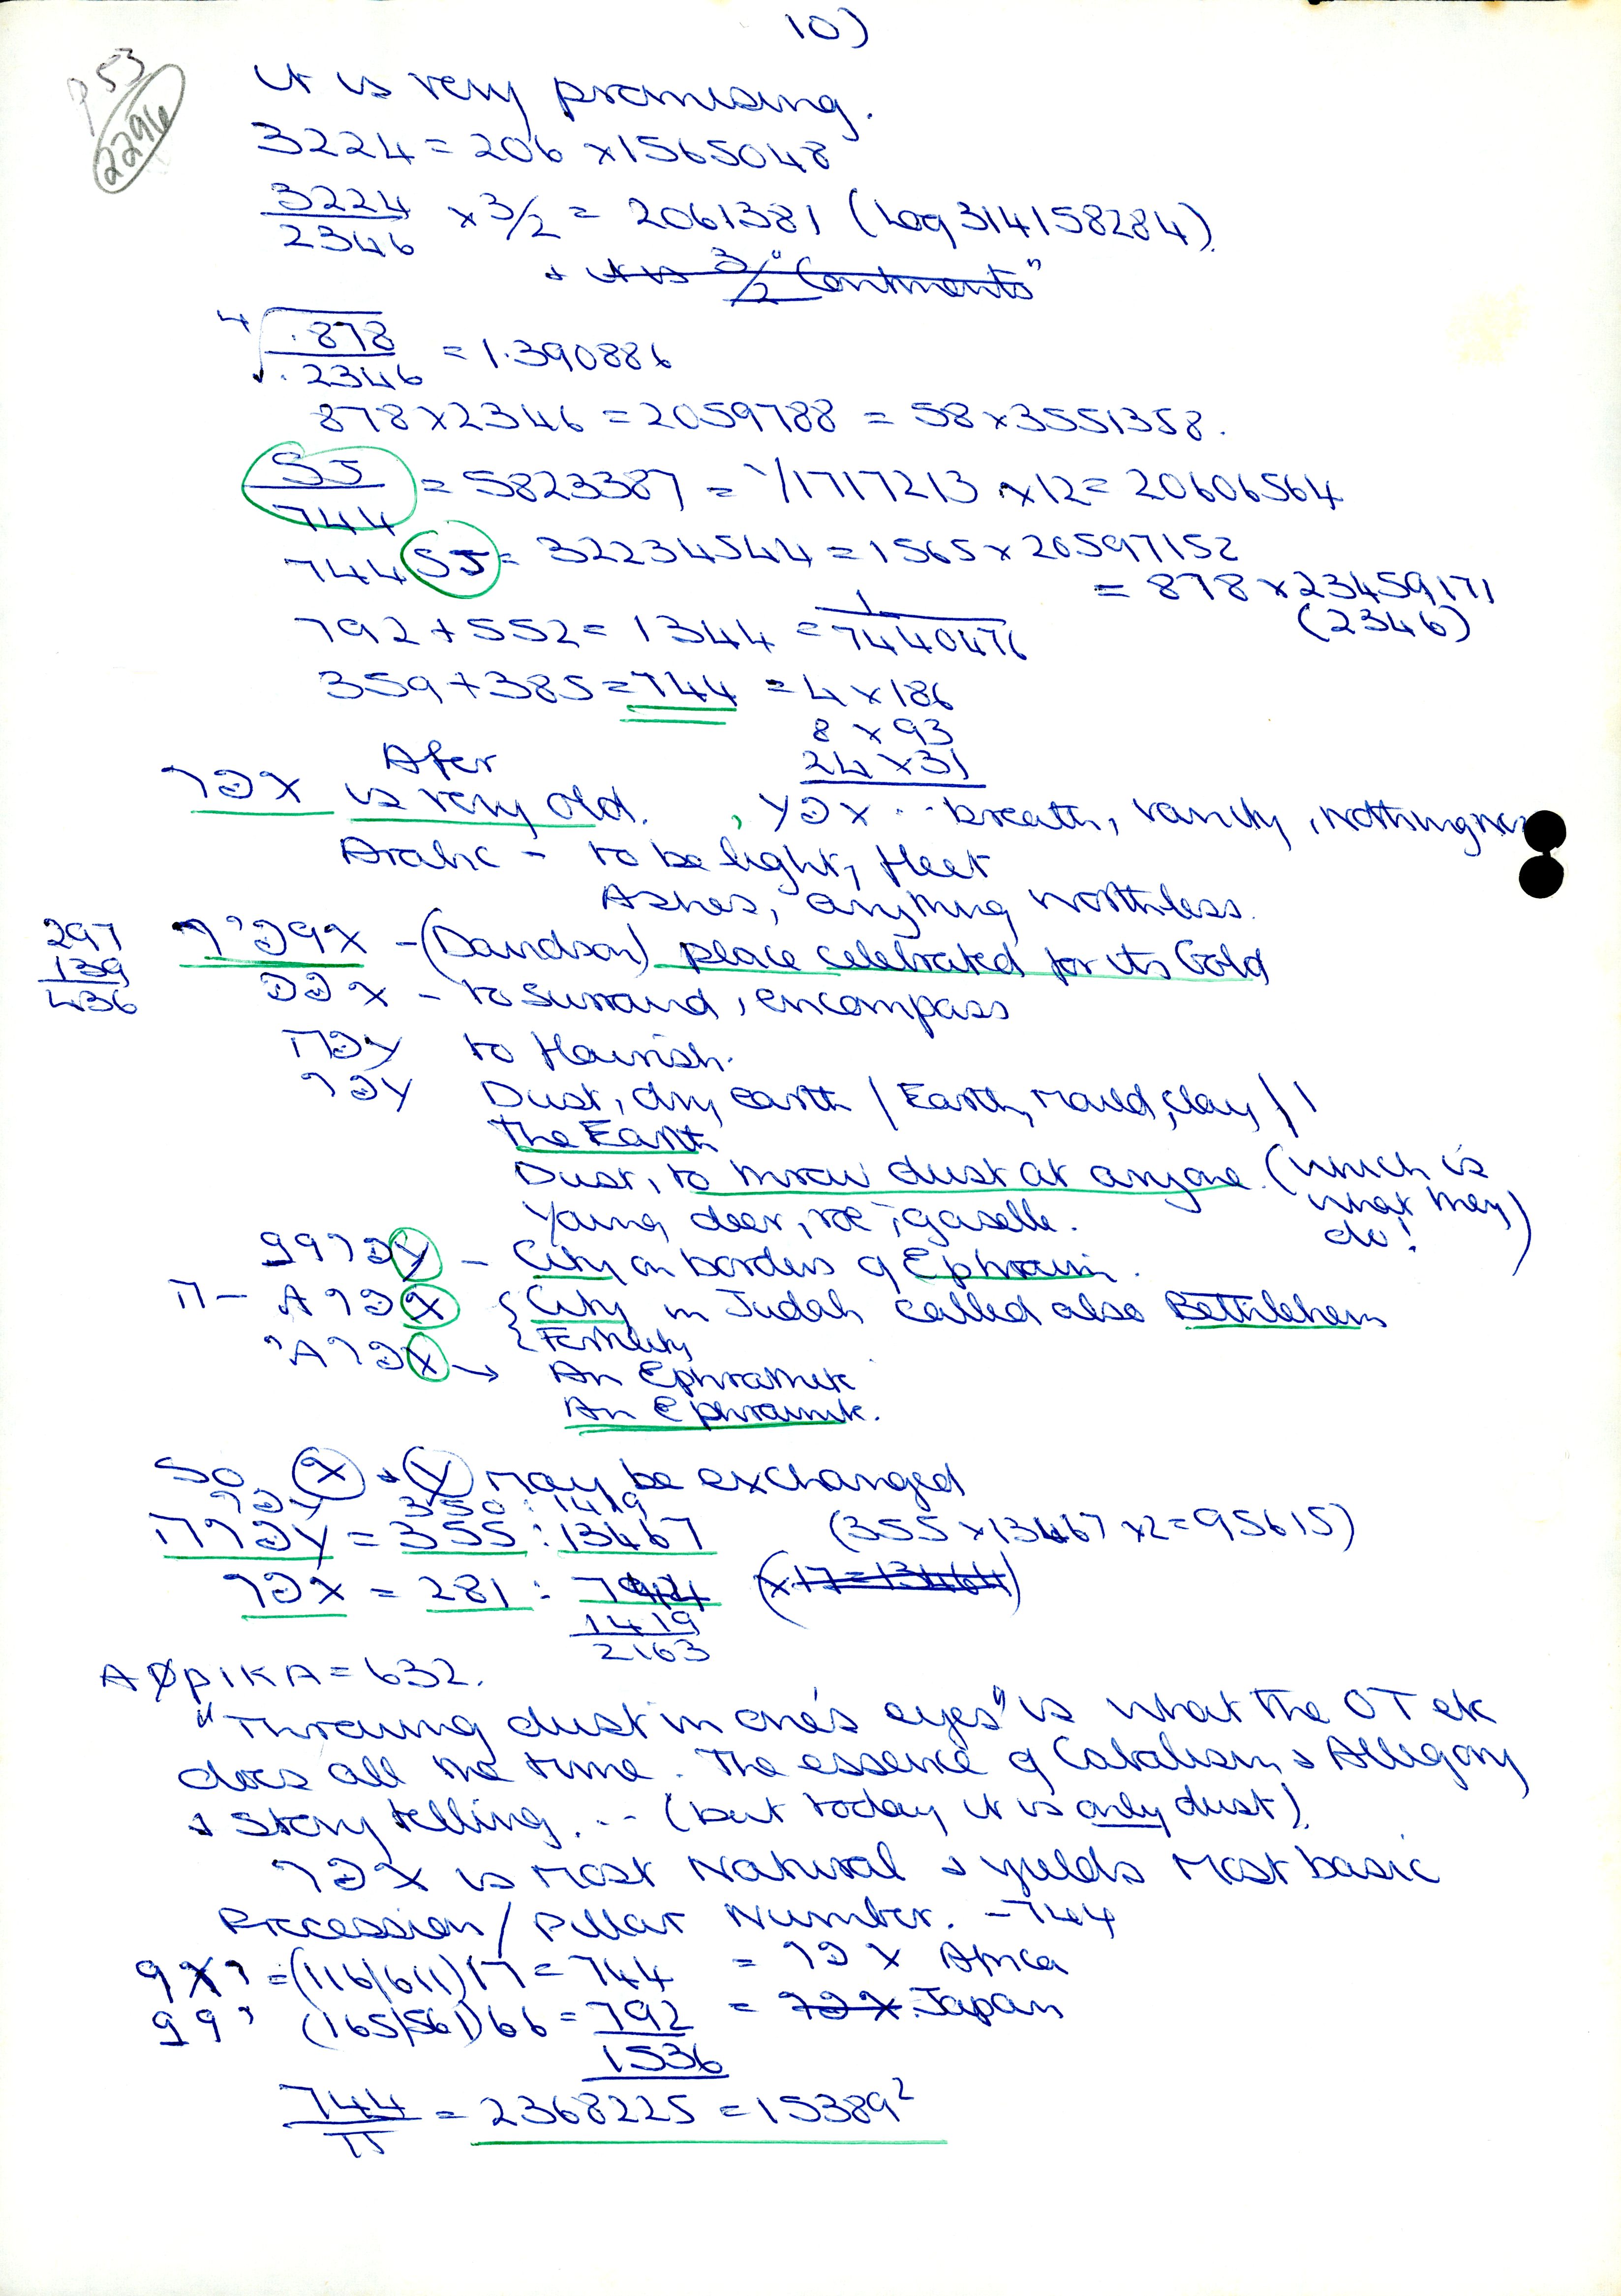 10)
p 53
2296
it is very promising.
3224 = 206 × 1565048
3224/2346 × 3/2 = 2061381 (Log 314158284)
+ it is 3/2 "Continents"
⁴√(.878/.2346) = 1.390886
878 × 2346 = 2059788 = 58 × 3551358.
SJ/744 = 5823387 = 1/1717213 × 12 = 20606564
744 SJ = 32234544 = 1565 × 20597152
= 878 × 23459171
(2346)
792 + 552 = 1344 = 1/7440476
359 + 385 = 744 = 4 × 186
8 × 93
24 × 31
Afer
רפא is very old. , עפא .. breath, vanity, nothingness
Arabic - to be light, fleet
Ashes, anything worthless.
297
139
436
ריפוא - (Davidson) place celebrated for its Gold
אפפ - to surround, encompass
עפה to flourish.
עפר Dust, dry earth / Earth, mould, clay //
The Earth
Dust, to throw dust at anyone. (which is what they do!)
Young deer, roe, gazelle.
עפרון - City on borders of Ephraim.
אפרת - ה { City in Judah called also Bethlehem
{ Fertility
אפרתי → An Ephrathite
An Ephraimite.
So א + ע may be exchanged
עפר 350 : 1419
עפרה = 355 : 13467 (355 × 13467 × 2 = 95615)
אפר = 281 : 744 (×17=13464)
1419
2163
ΑφρικΑ = 632.
"Throwing dust in one's eyes" is what the OT etc
does all the time. The essence of Cabalism & Allegory
& Story telling. .. (but today it is only dust).
אפר is most Natural & yields most basic
Precession / Pillar Number. - 744
= (116/611) 17 = 744 = אפר Africa
(165/561) 66 = 792 = אפר Japan
1536
744/π = 2368225 = 15389²